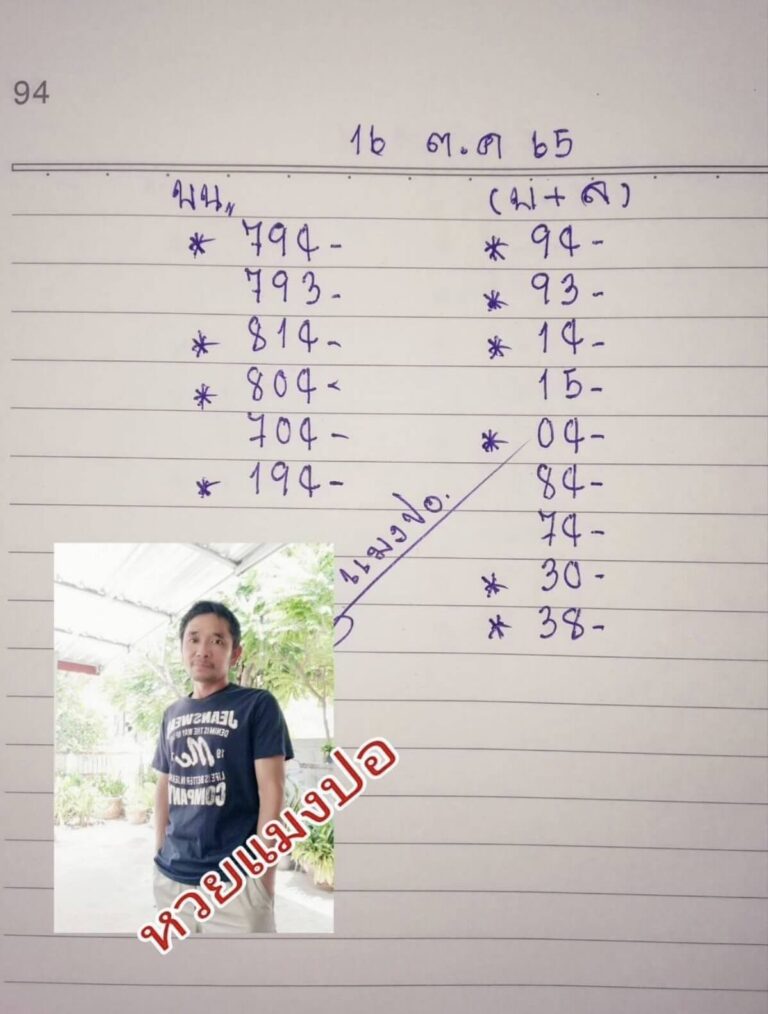 94
16 ต.ค 65
บน,, (บ+ล)
* 794- * 94-
793- * 93-
* 814- * 14-
* 804- 15-
704- * 04-
* 194- 84-
74-
* 30-
* 38-
แมงปอ.
JEANSWEAR
DENIM IS THE WAY OF
19 Me
LIFE IS BETTER IN JEANS
COMPANY
หวยแมงปอ